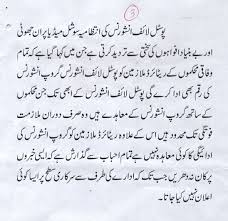 3
پوسٹل لائف انشورنس کی انتظامیہ سوشل میڈیا پر ان جھوٹی
اور بے بنیاد افواہوں کی سختی سے تردید کرتی ہے جن میں کہا گیا ہے کہ تمام
وفاقی محکموں کے ریٹائرڈ ملازمین کو پوسٹل لائف انشورنس گروپ انشورنس
کی رقم بھی ادا کرے گی پوسٹل لائف انشورنس کے ابھی تک جن
محکموں کے ساتھ گروپ انشورنس کے معاہدے ہیں وہ صرف دوران ملازمت
فوتگی تک محدود ہیں اس کے علاوہ ریٹائرڈ ملازمین کو گروپ انشورنس کی
ادائیگی کا کوئی معاہدہ نہیں ہے تمام احباب سے گذارش ہے کہ ایسی خبروں
پر کان نہ دھریں جب تک کہ ادارے کی طرف سے سرکاری سطح پر ایسا کوئی
اعلان نہیں کیا جاتا۔